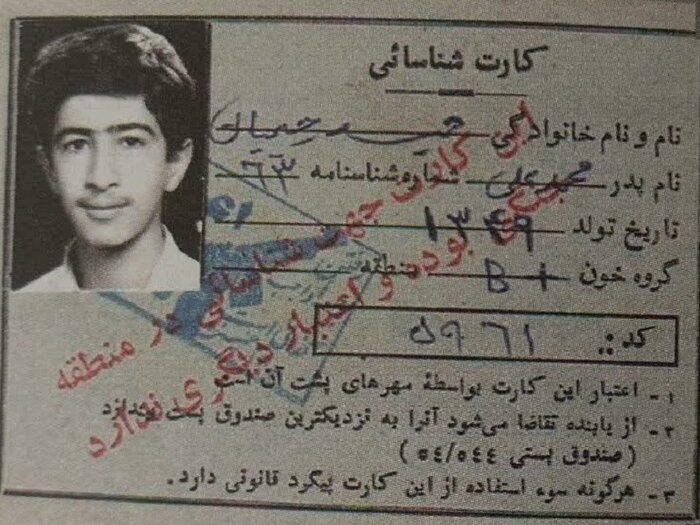 کارت شناسائی
نام و نام خانوادگی
نام پدر محمد علی شماره شناسنامه ۶۳
تاریخ تولد ۱۳۴۹
گروه خون B + منطقه
کد: ۵۹۶۱
۱ - اعتبار این کارت بواسطهٔ مهرهای پشت آن است
۲ - از یابنده تقاضا می‌شود آنرا به نزدیکترین صندوق پست بیندازد
( صندوق پستی ۵۴/۵۴۴ )
۳ - هرگونه سوء استفاده از این کارت پیگرد قانونی دارد.
این کارت جهت شناسائی در منطقه
جنگی بوده و اعتبار دیگری ندارد